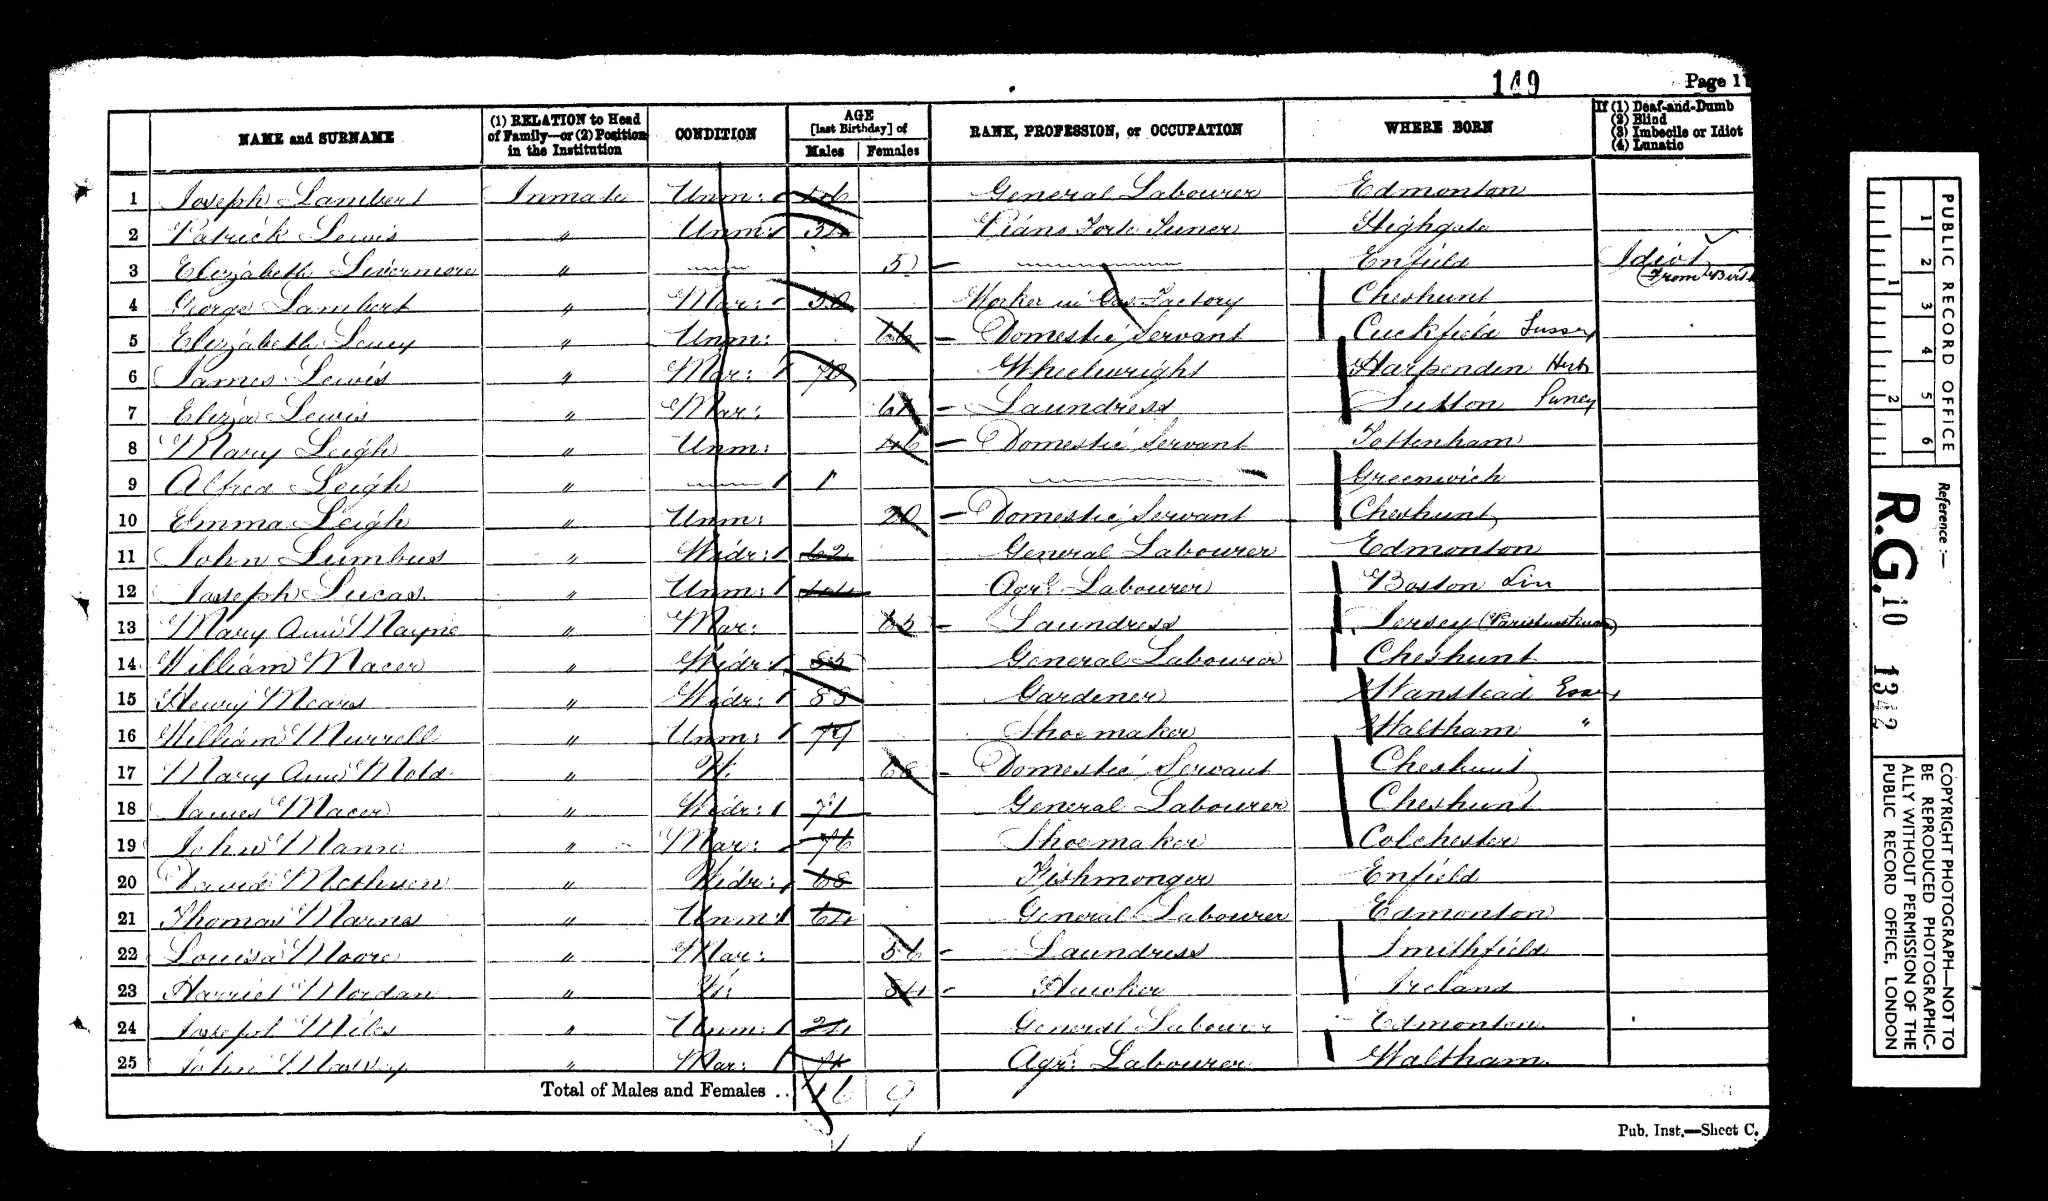 149 Page 11
NAME and SURNAME (1) RELATION to Head of Family—or (2) Position in the Institution CONDITION AGE [last Birthday] of Males Females RANK, PROFESSION, or OCCUPATION WHERE BORN If (1) Deaf-and-Dumb (2) Blind (3) Imbecile or Idiot (4) Lunatic
1 Joseph Lambert Inmate Unm: 46 General Labourer Edmonton
2 Patrick Lewis " Unm: Piano Forte Tuner Highgate
3 Elizabeth Livermore " 5 Enfield Idiot From Birth
4 George Lambert " Mar: 50 Worker in Gas Factory Cheshunt
5 Elizabeth " Unm: 66 Domestic Servant Cuckfield Sussex
6 James Lewis " Mar: 70 Wheelwright Harpenden Herts
7 Eliza Lewis " Mar: Laundress Sutton Surrey
8 Mary Leigh " Unm: 46 Domestic Servant Tottenham
9 Alfred Leigh " 1 Greenwich
10 Emma Leigh " Unm: 20 Domestic Servant Cheshunt
11 John Lumbus " Widr: 62 General Labourer Edmonton
12 Joseph Lucas " Unm: 44 Agr: Labourer Boston Lin
13 Mary Ann Mayne " Mar: Laundress Jersey
14 William Macer " Widr: General Labourer Cheshunt
15 Henry Meares " Widr: 88 Gardener Wanstead Essex
16 William Murrell " Unm: 79 Shoemaker Waltham "
17 Mary Ann Mold " W. 68 Domestic Servant Cheshunt
18 James Macer " Widr: 71 General Labourer Cheshunt
19 John Mann " Mar: 76 Shoemaker Colchester
20 David Methuen " Widr: 68 Fishmonger Enfield
21 Thomas Marns " Unm: 64 General Labourer Edmonton
22 Louisa Moore " Mar: 56 Laundress Smithfield
23 Harriet Mordan " W: 84 Hawker Ireland
24 Joseph Miles " Unm: 24 General Labourer Edmonton
25 John " Mar: Agr: Labourer Waltham
Total of Males and Females .. 16 9
Pub. Inst.—Sheet C.
PUBLIC RECORD OFFICE
1 2 3 4 5 6
1 2
Reference :—
R.G. 10 1342
COPYRIGHT PHOTOGRAPH—NOT TO
BE REPRODUCED PHOTOGRAPHIC-
ALLY WITHOUT PERMISSION OF THE
PUBLIC RECORD OFFICE, LONDON